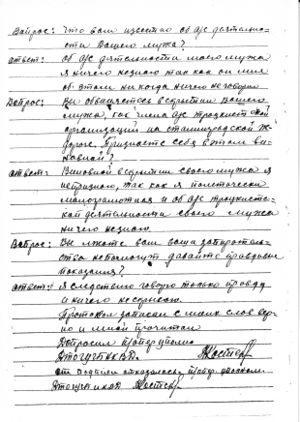 Вопрос: Что вам известно об а/с деятельно-
сти Вашего мужа?
Ответ: Об а/с деятельности моего мужа
я ничего не знаю так как он мне
об этом никогда ничего не говорил
Вопрос: Вы обвиняетесь в укрытии Вашего
мужа, как члена а/с троцкистской
организации на сталинградской ж.
дороге. Признаете себя в этом ви-
новной?
Ответ: Виновной в укрытии своего мужа я
не признаю, так как я политически
малограмотная и об а/с троцкистс-
кой деятельности своего мужа
ничего не знаю.
Вопрос: Вы лжете вам ваша запирательс-
тво не поможет давайте правдивые
показания?
Ответ: Я следствию говорю только правду
и ничего не скрываю.
Протокол записан с моих слов вер-
но и мной прочитан
Допросил
от подписи отказалась